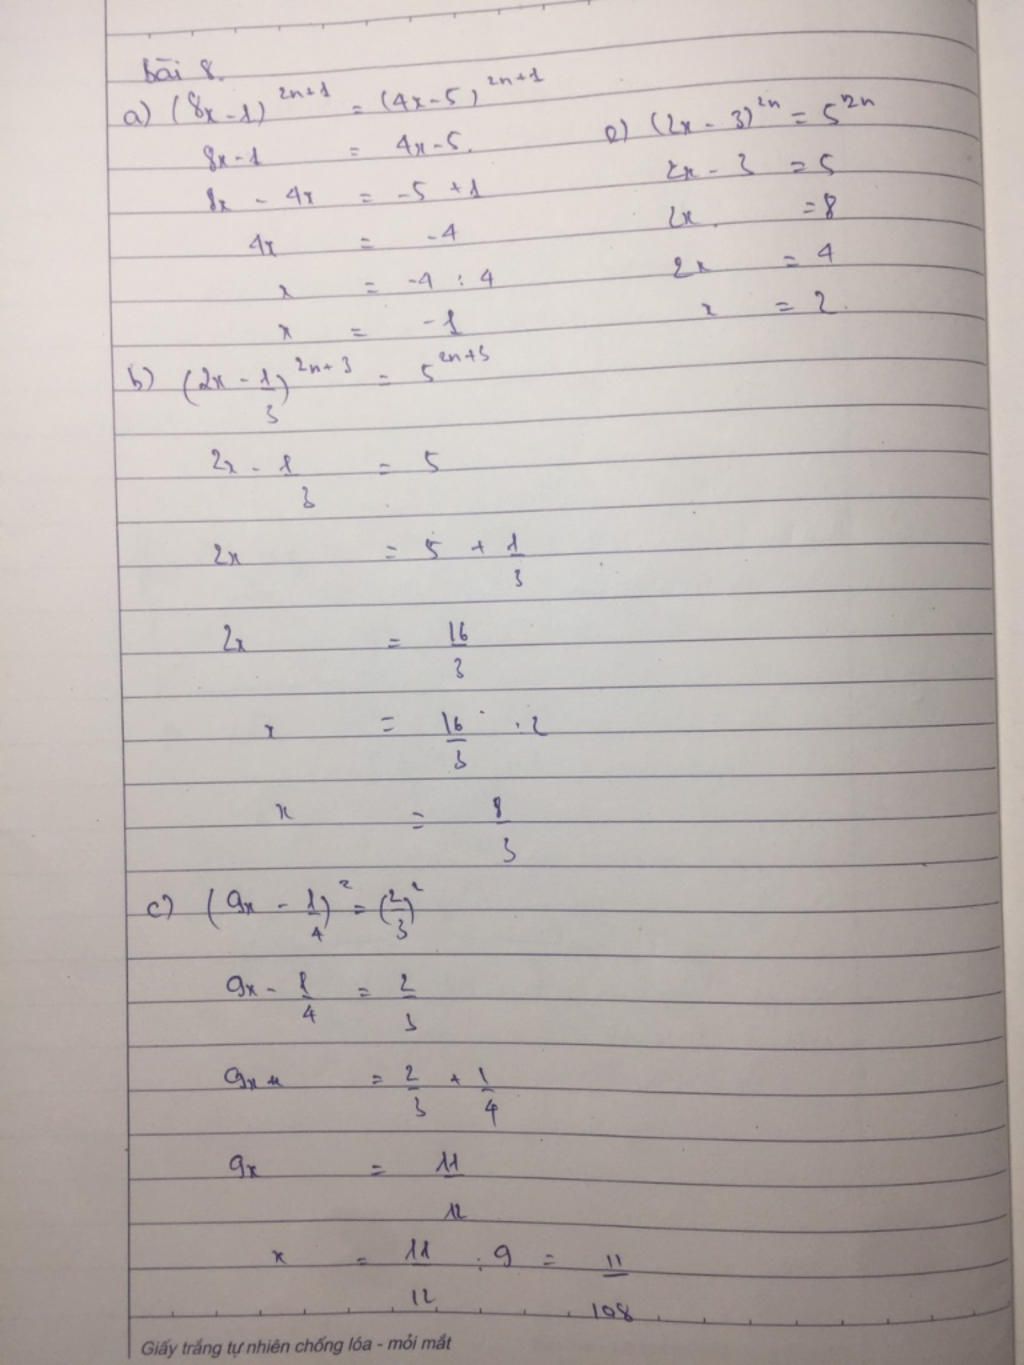 Bài 8.
a) (8x-1)^{2n+1} = (4x-5)^{2n+1}
8x-1 = 4x-5.
8x - 4x = -5 + 1
4x = -4
x = -4 : 4
x = -1
e) (2x - 3)^{2n} = 5^{2n}
2x - 3 = 5
2x = 8
2x = 4
x = 2.
b) (2x - 1/3)^{2n+3} = 5^{2n+3}
2x - 1/3 = 5
2x = 5 + 1/3
2x = 16/3
x = 16/3 : 2
x = 8/3
c) (9x - 1/4)^2 = (2/3)^2
9x - 1/4 = 2/3
9x = 2/3 + 1/4
9x = 11/12
x = 11/12 : 9 = 11/108
Giấy trắng tự nhiên chống lóa - mỏi mắt